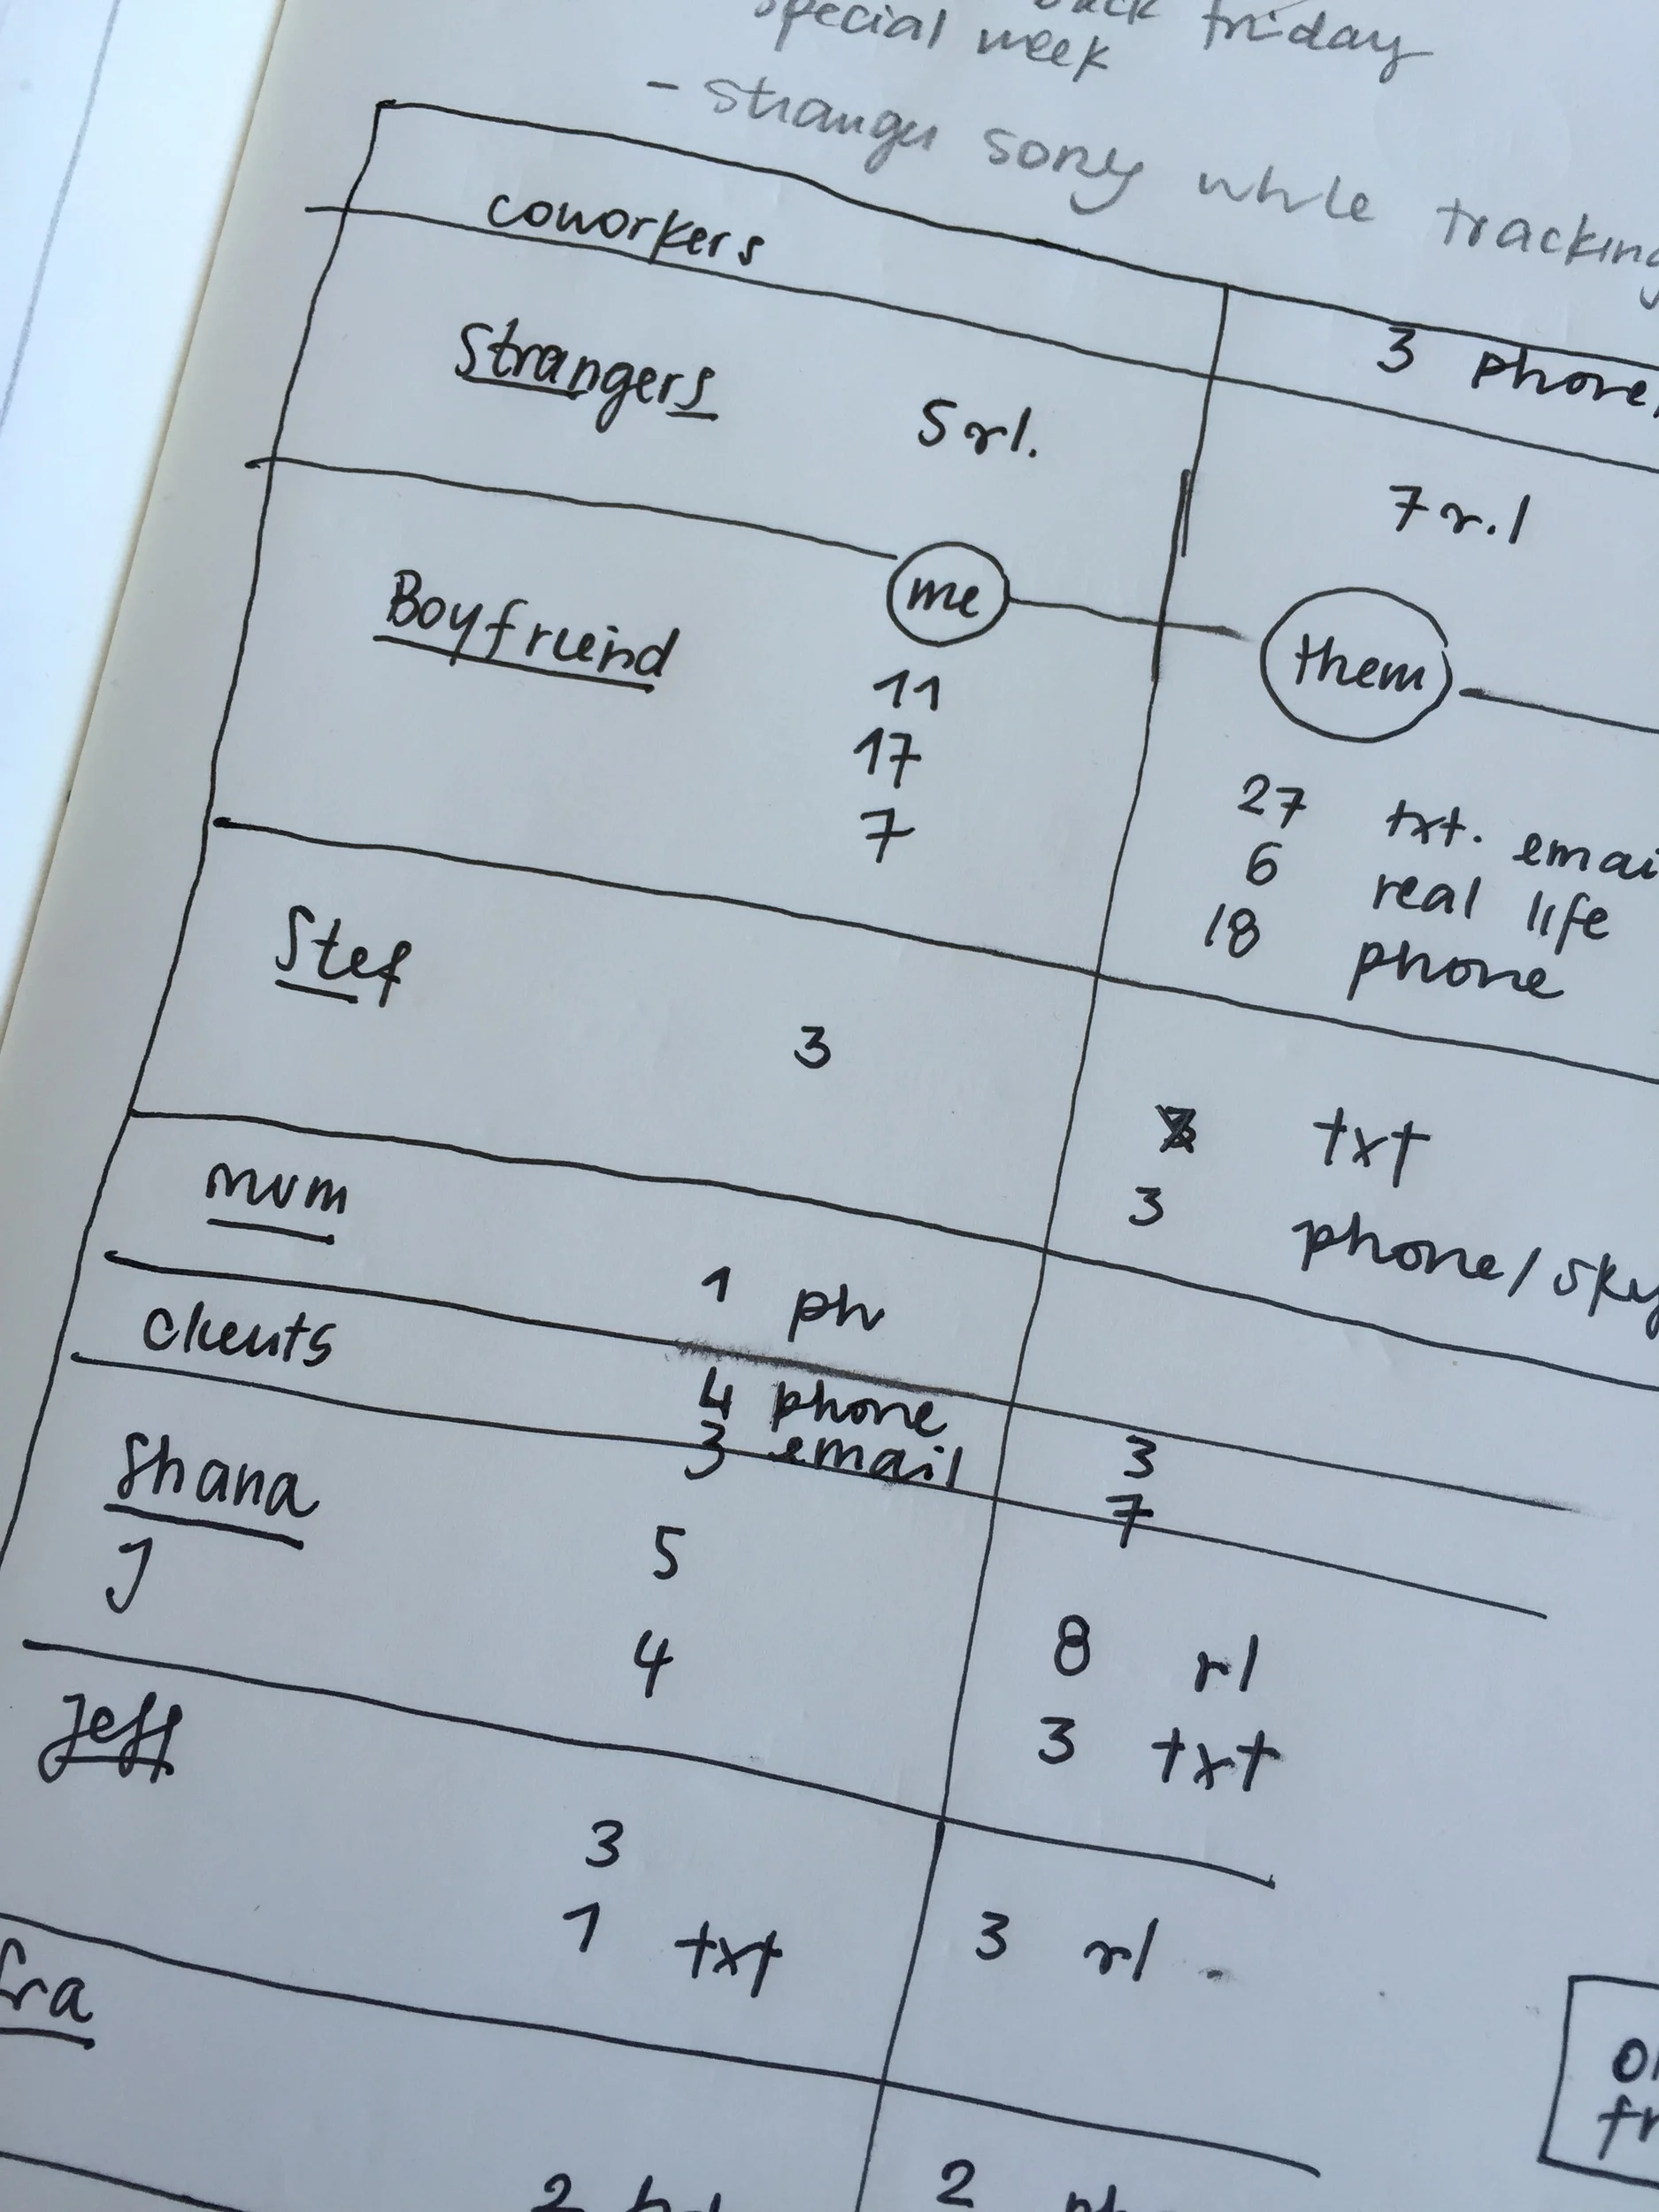 friday
special week
- stranger sorry while tracking
coworkers
3 phone
Strangers 5 rl. 7 r.l
me them
Boyfriend
11 27 txt. emai
17 6 real life
7 18 phone
Stef
3 txt
3 phone/sky
mum
1 ph
clients
4 phone 3
3 email 7
Shana
5 8 rl
J
4 3 txt
Jeff
3 3 rl
1 txt
fra
2 2